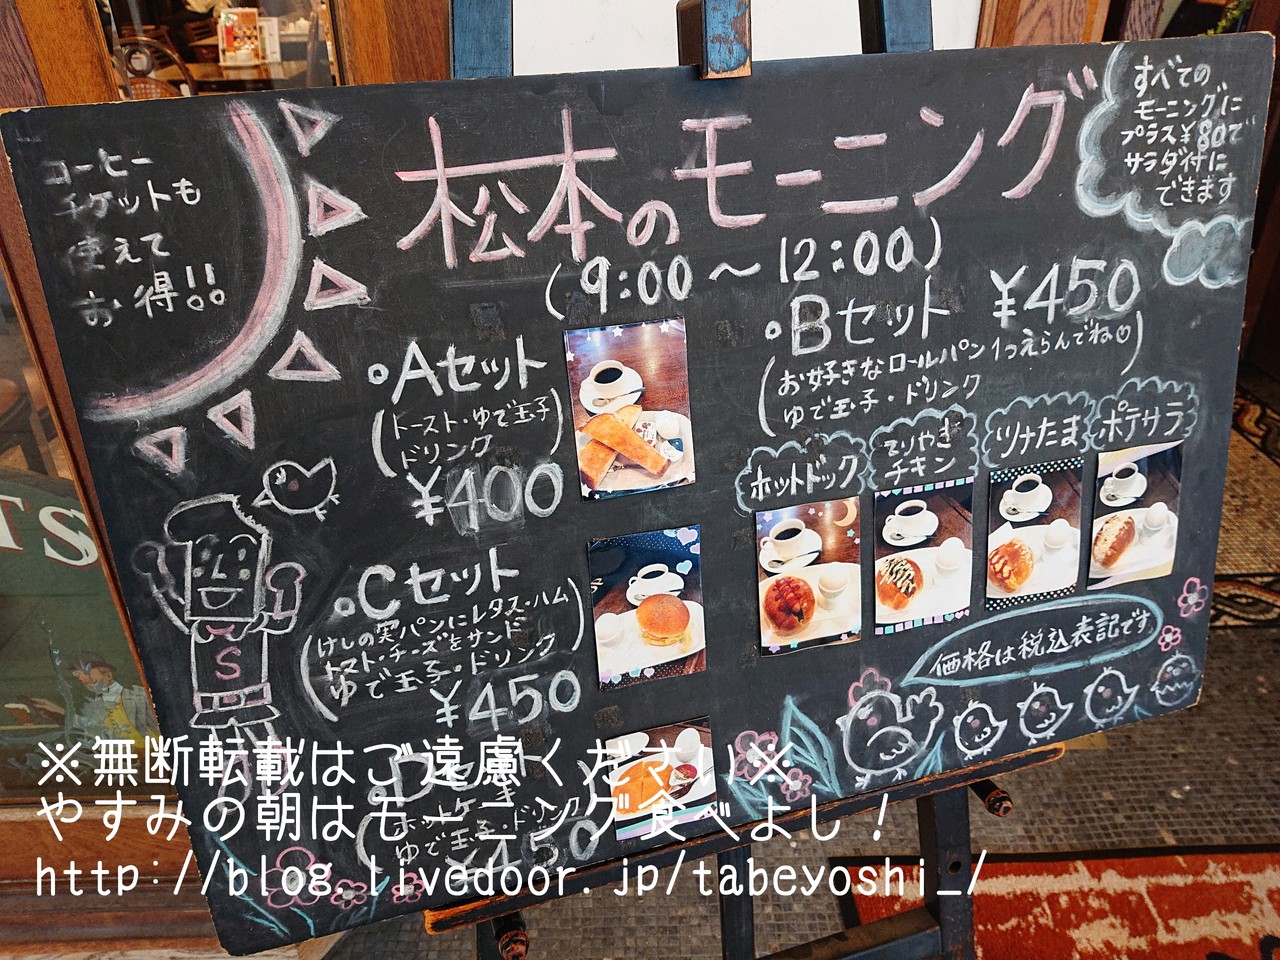 松本のモーニング
(9:00～12:00)
コーヒー
チケットも
使えて
お得!!
すべての
モーニングに
プラス¥80で
サラダ付に
できます
・Aセット
(トースト・ゆで玉子
ドリンク)
¥400
・Bセット ¥450
(お好きなロールパン1つえらんでね♡
ゆで玉子・ドリンク)
ホットドック
てりやき
チキン
ツナたま
ポテサラ
・Cセット
(けしの実パンにレタス・ハム
トマト・チーズをサンド
ゆで玉子・ドリンク)
¥450
価格は税込表記です
S
TS
Dセット
ホットケーキ
ゆで玉子・ドリンク
¥450
※無断転載はご遠慮ください※
やすみの朝はモーニング食べよし！
http://blog.livedoor.jp/tabeyoshi_/